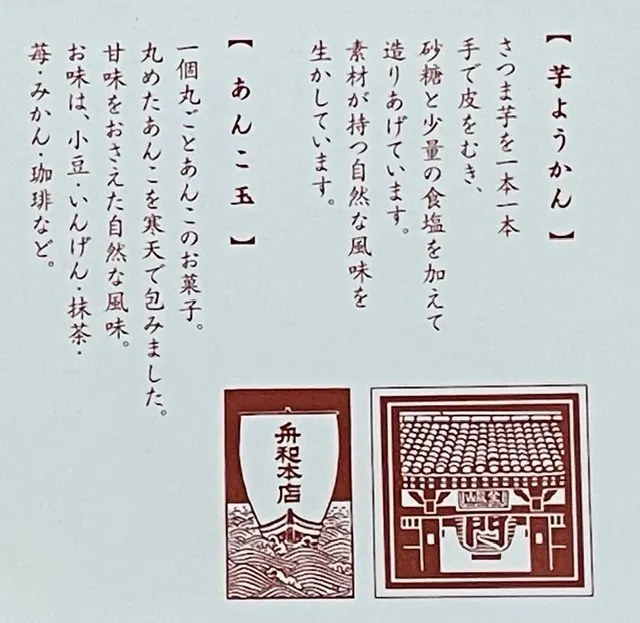 【芋ようかん】
さつま芋を一本一本
手で皮をむき、
砂糖と少量の食塩を加えて
造りあげています。
素材が持つ自然な風味を
生かしています。
【あんこ玉】
一個丸ごとあんこのお菓子。
丸めたあんこを寒天で包みました。
甘味をおさえた自然な風味。
お味は、小豆・いんげん・抹茶・
苺・みかん・珈琲など。
門
舟和本店